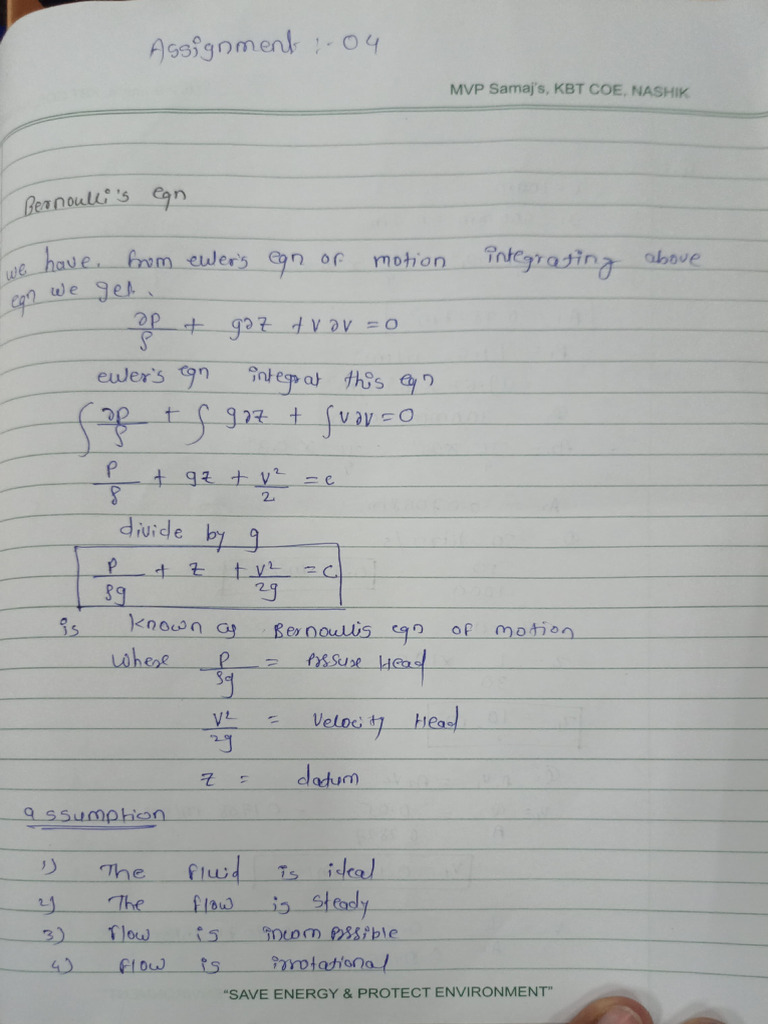 Assignment :- 04
MVP Samaj's, KBT COE, NASHIK
Bernoulli's eqn
we have. from euler's eqn of motion integrating above
eqn we get.
∂p/ρ + g∂z + v∂v = 0
euler's eqn integrat this eqn
∫ ∂p/ρ + ∫ g∂z + ∫ v∂v = 0
P/ρ + gz + v²/2 = c
divide by g
P/ρg + z + v²/2g = c
is known as Bernoullis eqn of motion
where P/ρg = Prssure Head
v²/2g = velocity Head
z = datum
assumption
1) The fluid is ideal
2) The flow is steady
3) flow is incompssible
4) flow is irrotational
"SAVE ENERGY & PROTECT ENVIRONMENT"